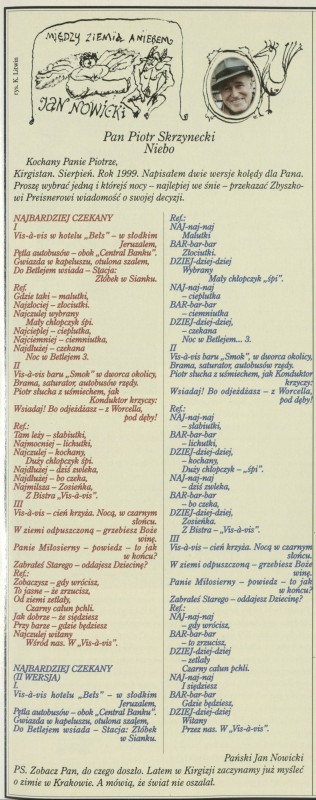 rys. K. Litwin
MIĘDZY ZIEMIĄ A NIEBEM
JAN NOWICKI
Pan Piotr Skrzynecki
Niebo
Kochany Panie Piotrze,
Kirgistan. Sierpień. Rok 1999. Napisałem dwie wersje kolędy dla Pana.
Proszę wybrać jedną i którejś nocy – najlepiej we śnie – przekazać Zbyszko-
wi Preisnerowi wiadomość o swojej decyzji.
NAJBARDZIEJ CZEKANY
I
Vis-à-vis w hotelu „Bels” – w słodkim
Jeruzalem,
Pętla autobusów – obok „Central Banku”.
Gwiazda w kapeluszu, otulona szalem,
Do Betlejem wsiada – Stacja:
Żłóbek w Sianku.
Ref.
Gdzie taki – malutki,
Najzłociej – złociutki.
Najczulej wybrany
Mały chłopczyk śpi.
Najcieplej – cieplutka,
Najciemniej – ciemniutka,
Najdłużej – czekana
Noc w Betlejem 3.
II
Vis-à-vis baru „Smok”, w dworca okolicy,
Brama, saturator, autobusów rzędy.
Piotr słucha z uśmiechem, jak
Konduktor krzyczy:
Wsiadaj! Bo odjeżdżasz – z Worcella,
pod dęby!
Ref.:
Tam leży – słabiutki,
Najmocniej – lichutki,
Najczulej – kochany,
Duży chłopczyk śpi.
Najdłużej – dziś zwleka,
Najdłużej – bo czeka,
Najmilsza – Zosieńka,
Z Bistra „Vis-à-vis”.
III
Vis-à-vis – cień krzyża. Nocą, w czarnym
słońcu.
W ziemi odpuszczoną – grzebiesz Boże
winę.
Panie Miłosierny – powiedz – to jak
w końcu?
Zabrałeś Starego – oddajesz Dziecinę?
Ref.:
Zobaczysz – gdy wrócisz,
To jasne – że zrzucisz,
Od ziemi zetlały,
Czarny całun pchli.
Jak dobrze – że siędziesz
Przy barze – gdzie będziesz
Najczulej witany
Wśród nas. W „Vis-à-vis”.
NAJBARDZIEJ CZEKANY
(II WERSJA)
I.
Vis-à-vis hotelu „Bels” – w słodkim
Jeruzalem,
Pętla autobusów – obok „Central Banku”.
Gwiazda w kapeluszu, otulona szalem,
Do Betlejem wsiada – Stacja: Żłóbek
w Sianku.
Ref.:
NAJ-naj-naj
Malutki
BAR-bar-bar
Złociutki.
DZIEJ-dziej-dziej
Wybrany
Mały chłopczyk „śpi”.
NAJ-naj-naj
– cieplutka
BAR-bar-bar
– ciemniutka
DZIEJ-dziej-dziej,
– czekana
Noc w Betlejem... 3.
II
Vis-à-vis baru „Smok”, w dworca okolicy,
Brama, saturator, autobusów rzędy.
Piotr słucha z uśmiechem, jak Konduktor
krzyczy:
Wsiadaj! Bo odjeżdżasz – z Worcella,
pod dęby!
Ref.:
NAJ-naj-naj
– słabiutki,
BAR-bar-bar
– lichutki,
DZIEJ-dziej-dziej,
– kochany,
Duży chłopczyk – „śpi”.
NAJ-naj-naj
– dziś zwleka,
BAR-bar-bar
– bo czeka,
DZIEJ-dziej-dziej,
Zosieńka.
Z Bistra – „Vis-à-vis”.
III
Vis-à-vis – cień krzyża. Nocą w czarnym
słońcu.
W ziemi odpuszczoną – grzebiesz Boże
winę.
Panie Miłosierny – powiedz – to jak
w końcu?
Zabrałeś Starego – oddajesz Dziecinę?
Ref.:
NAJ-naj-naj
– gdy wrócisz,
BAR-bar-bar
– to zrzucisz,
DZIEJ-dziej-dziej
– zetlały
Czarny całun pchli.
NAJ-naj-naj
I siędziesz
BAR-bar-bar
Gdzie będziesz,
DZIEJ-dziej-dziej
Witany
Przez nas. W „Vis-à-vis”.
Pański Jan Nowicki
PS. Zobacz Pan, do czego doszło. Latem w Kirgizji zaczynamy już myśleć
o zimie w Krakowie. A mówią, że świat nie oszalał.